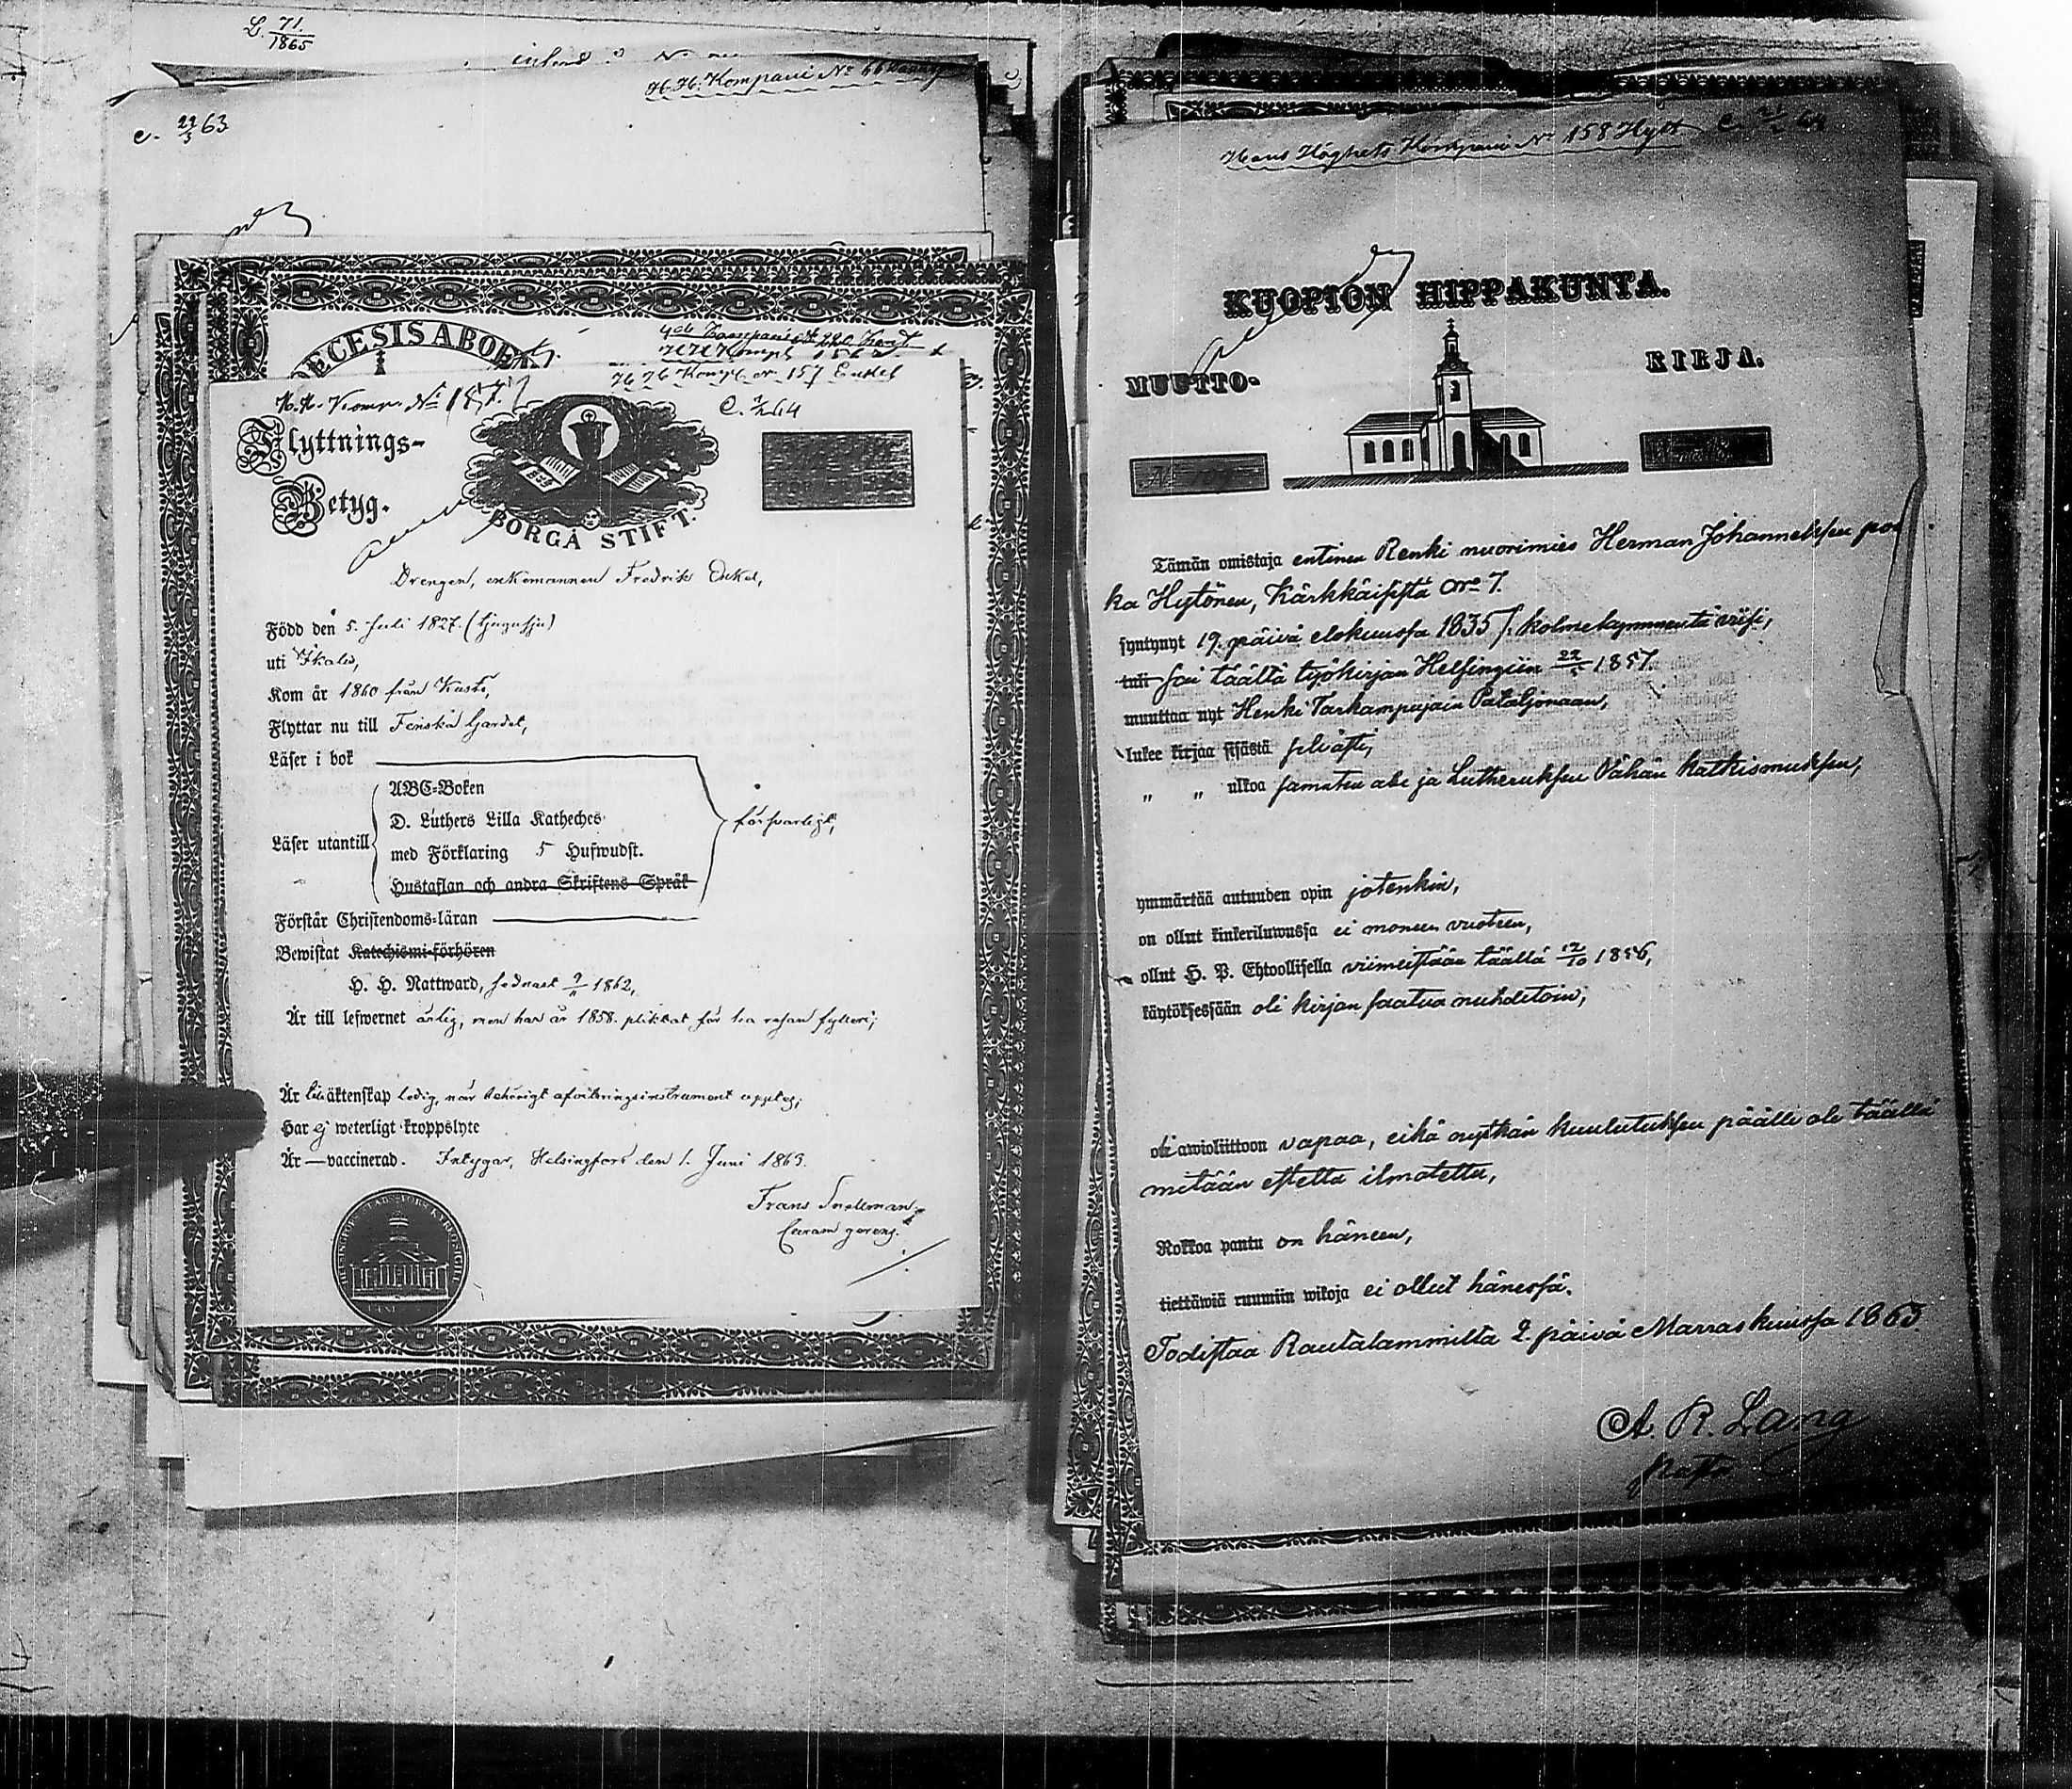 L. 71. 1865
H. H. Kompani No 66
c. 22/5 63
DECESIS ABOEN
4de Kompani
H H Komp No 157 Enkel
H. H. Komp. No 157.
C. 1/2 64
Flyttnings-
Betyg.
BORGÅ STIFT.
Drengen, enkemannen Fredrik Enkel,
Född den 5. Juli 1827. (tjugusju)
uti Ikalis,
Kom år 1860 från Kusto,
Flyttar nu till Finska Gardet,
Läser i bok
ABC-Boken
D. Luthers Lilla Katheches
Läser utantill
med Förklaring 5 Hufwudst.
Hustaflan och andra Skriftens Språk
försvarligt,
Förstår Christendoms-läran
Bewistat Katechismi-förhören
H. H. Nattward, sednast 9/11 1862,
Är till lefwernet ärlig, men har år 1858. pliktat för 1sta resan fylleri;
Är till äktenskap ledig, när behörigt afvittringsinstrument upptes;
Har ej weterligt kroppslyte
Är — vaccinerad. Intygar, Helsingfors den 1. Juni 1863.
Frans Snellman.
Curam gerens.
Hans Höghets Kompani No 158 Hytt C. 21/2 64
KUOPION HIPPAKUNTA.
MUUTTO-
KIRJA.
No 109
Tämän omistaja entinen Renki nuorimies Herman Johanneksen poi
ka Hytönen, Kärkkäisistä No 7.
syntynyt 19. päivä elokuussa 1835 /: kolmekymmentä viisi,
tuli sai täältä työkirjan Helsingiin 22/5 1857.
muuttaa nyt Henki Tarkampujain Pataljonaan,
lukee kirjaa sisästä selvästi,
" " ulkoa samaten abc ja Lutheruksen Vähän katkismuksen,
ymmärtää autuuden opin jotenkin,
on ollut kinkeriluwussa ei moneen vuoteen,
ollut H. P. Ehtoollisella viimeistään täällä 12/10 1856,
käytöksessään oli kirjan saatua nuhdetoin;
oli awioliittoon vapaa, eikä nytkän kuulutuksen päälle ole täällä
mitään estettä ilmotettu,
Rokkoa pantu on häneen,
tiettäwiä ruumiin wikoja ei ollut hänessä.
Todistaa Rautalammilta 2. päivä Marraskuussa 1863
A. R. Lang